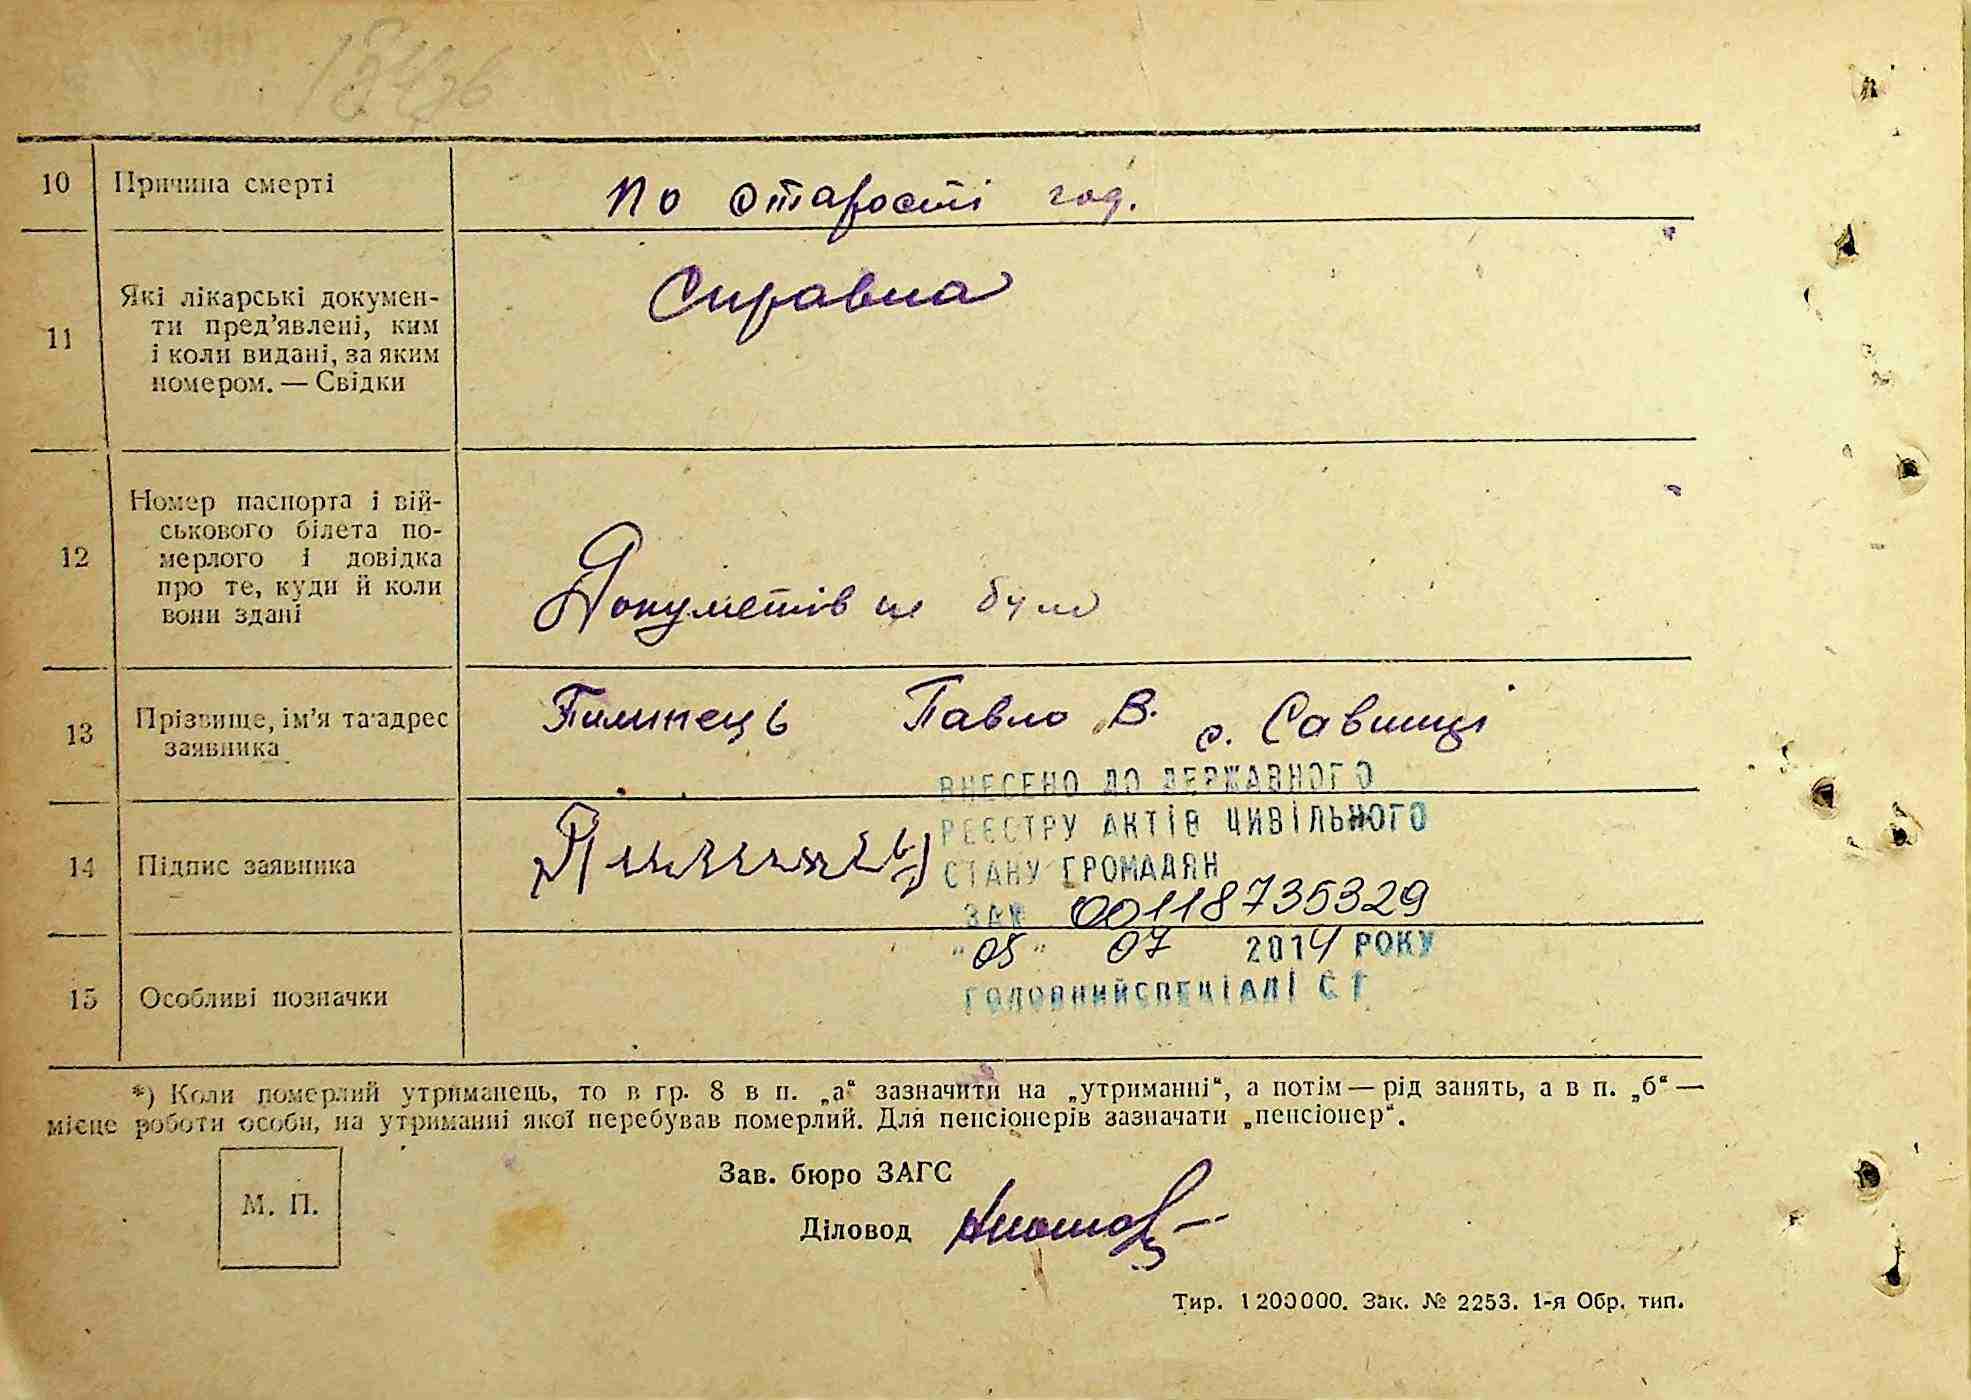 10 Причина смерті по старості год.
11 Які лікарські докумен-
ти пред'явлені, ким
і коли видані, за яким
номером. — Свідки
Справка
12 Номер паспорта і вій-
ськового білета по-
мерлого і довідка
про те, куди й коли
вони здані
Документів не було
13 Прізвище, ім'я та адрес
заявника
Павло В. с. Савинці
ВНЕСЕНО ДО ДЕРЖАВНОГО
РЕЄСТРУ АКТІВ ЦИВІЛЬНОГО
СТАНУ ГРОМАДЯН
ЗА № 00118735329
"05" 07 2014 РОКУ
ГОЛОВНИЙ СПЕЦІАЛІСТ
14 Підпис заявника
15 Особливі позначки
*) Коли померлий утриманець, то в гр. 8 в п. „а“ зазначити на „утриманні“, а потім — рід занять, а в п. „б“ —
місце роботи особи, на утриманні якої перебував померлий. Для пенсіонерів зазначати „пенсіонер“.
М. П.
Зав. бюро ЗАГС
Діловод
Тир. 1200000. Зак. № 2253. 1-я Обр. тип.